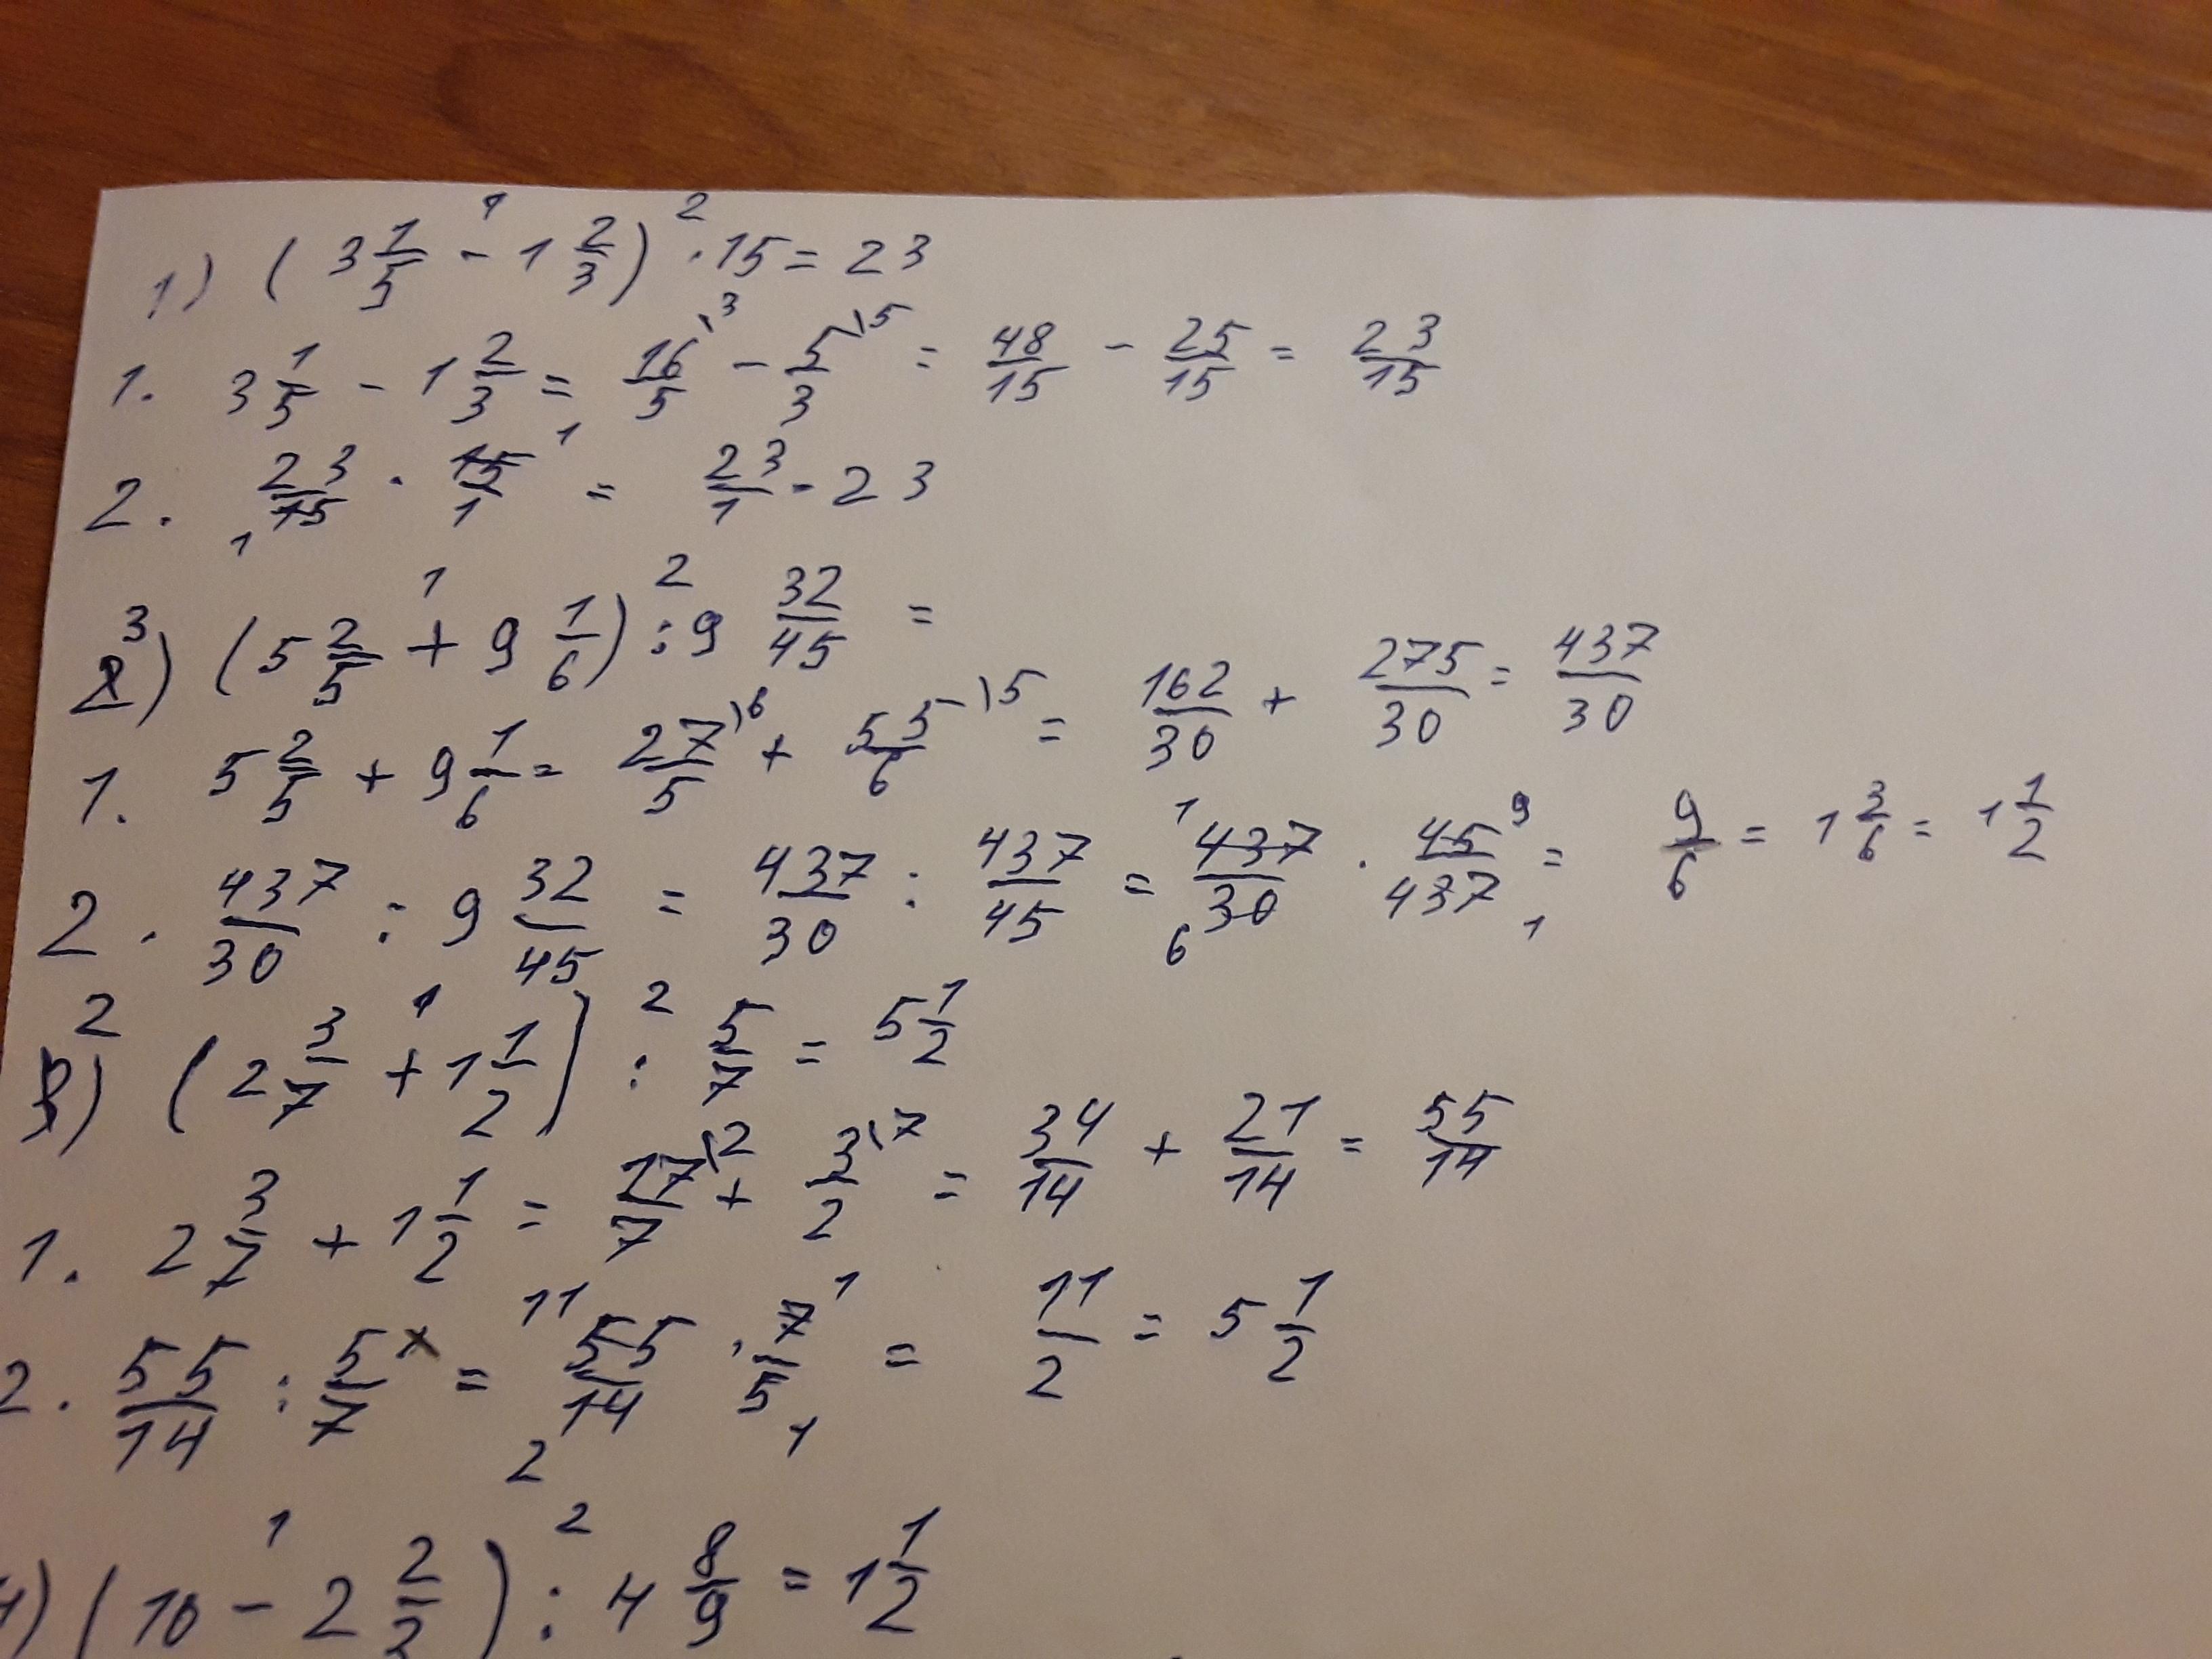 1) (3 1/5 - 1 2/3) · 15 = 23
1. 3 1/5 - 1 2/3 = 16/5 \3 - 5/3 \5 = 48/15 - 25/15 = 23/15
2. 23/15 · 15/1 = 23/1 = 23
3) (5 2/5 + 9 1/6) : 9 32/45 =
1. 5 2/5 + 9 1/6 = 27/5 \6 + 55/6 \5 = 162/30 + 275/30 = 437/30
2. 437/30 : 9 32/45 = 437/30 : 437/45 = 437/30 · 45/437 = 9/6 = 1 3/6 = 1 1/2
2) (2 3/7 + 1 1/2) : 5/7 = 5 1/2
1. 2 3/7 + 1 1/2 = 17/7 \2 + 3/2 \7 = 34/14 + 21/14 = 55/14
2. 55/14 : 5/7 = 55/14 · 7/5 = 11/2 = 5 1/2
4) (10 - 2 2/3) : 4 8/9 = 1 1/2